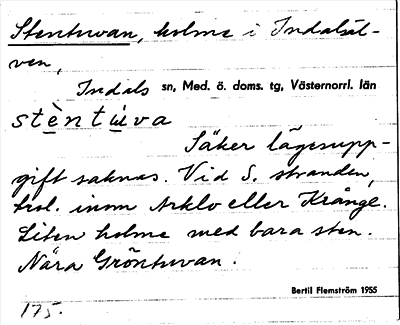 Stentuvan, holme i Indalsäl-
ven,
Indals sn, Med. ö. doms. tg, Västernorrl. län
stèntúva
Säker lägesupp-
gift saknas. Vid S. stranden,
trol. inom Arklo eller Krånge.
Liten holme med bara sten.
Nära Gröntuvan.
Bertil Flemström 1955
175.